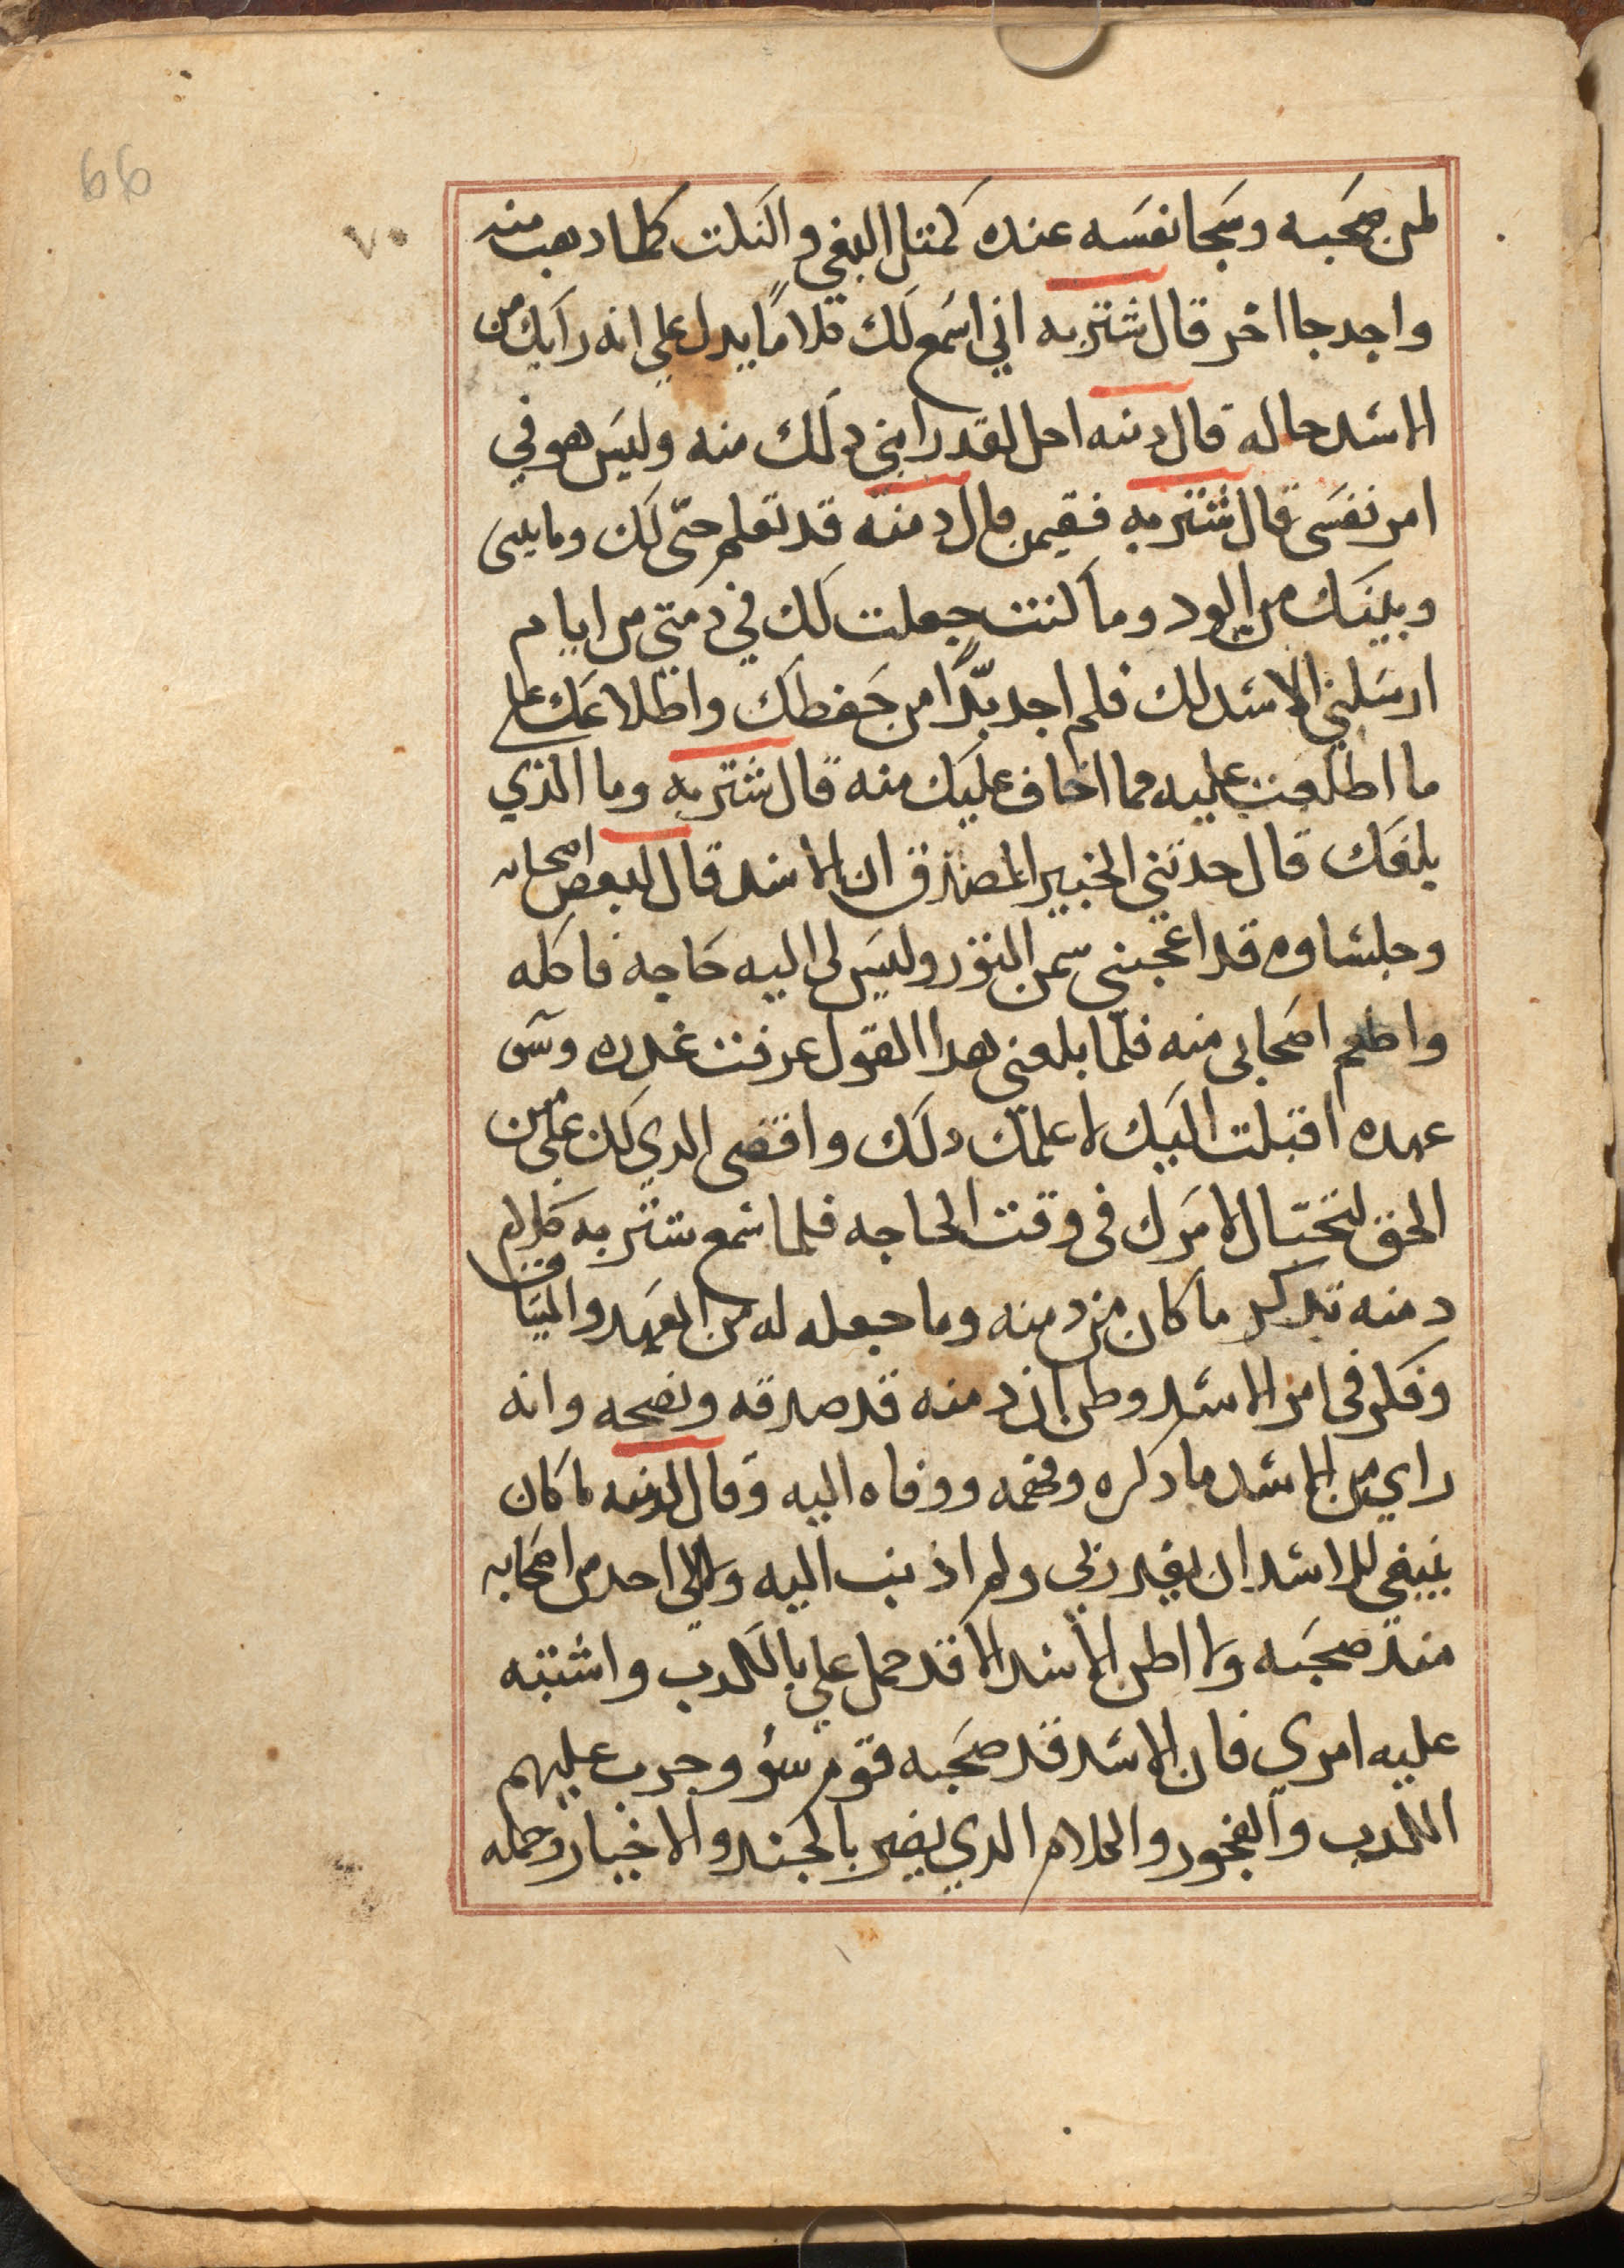 66
٧٠
لمن صحبه وسحا نفسه عنده كمثل البغي والنكت كلما ذهب منه
واحد جا اخر قال شتربه اني اسمع لك كلامًا يدل علي انه رابك من
الاسد حاله قال دمنه اجل لقد رابني ذلك منه وليس هو في
امر نفسي قال شتربه ففيمن قال دمنه قد تعلم حق لك وما بيني
وبينك من الود وما كنت جعلت لك في ذمتي من ايام
ارسلني الاسد لك فلم اجد بدًّا من حفظك واطلاعك علي
ما اطلعت عليه مما اخاف عليك منه قال شتربه وما الذي
بلغك قال حدثني الخبير المصدق ان الاسد قال لبعض اصحابه
وجلساوه قد اعجبني سمن الثور وليس لي اليه حاجه فاكله
واطعم اصحابي منه فلما بلغني هدا القول عرفت غدره وسو
عهده اقبلت اليك لاعلمك دلك واقضي الدي لك علي من
الحق لتحتال لامرك في وقت الحاجه فلما سمع شتربه كلام
دمنه تدكر ما كان من دمنه وما جعله له من العهد والميثاق
وفكر في امر الاسد وظن ان دمنه قد صدقه ونصحه وانه
راي من الاسد ما دكره وفهمه ووفاه اليه وقال لدمنه ما كان
ينبغي للاسد ان يغدر بي ولم اذنب اليه ولا الي احد من اصحابه
مند صحبته ولا اظن الاسد الا قد حمل علي بالكدب واشتبه
عليه امري فان الاسد قد صحبه قوم سؤ وجرب عليهم
الكدب والفجور والكلام الدي يضر بالجند والاخيار وحمله